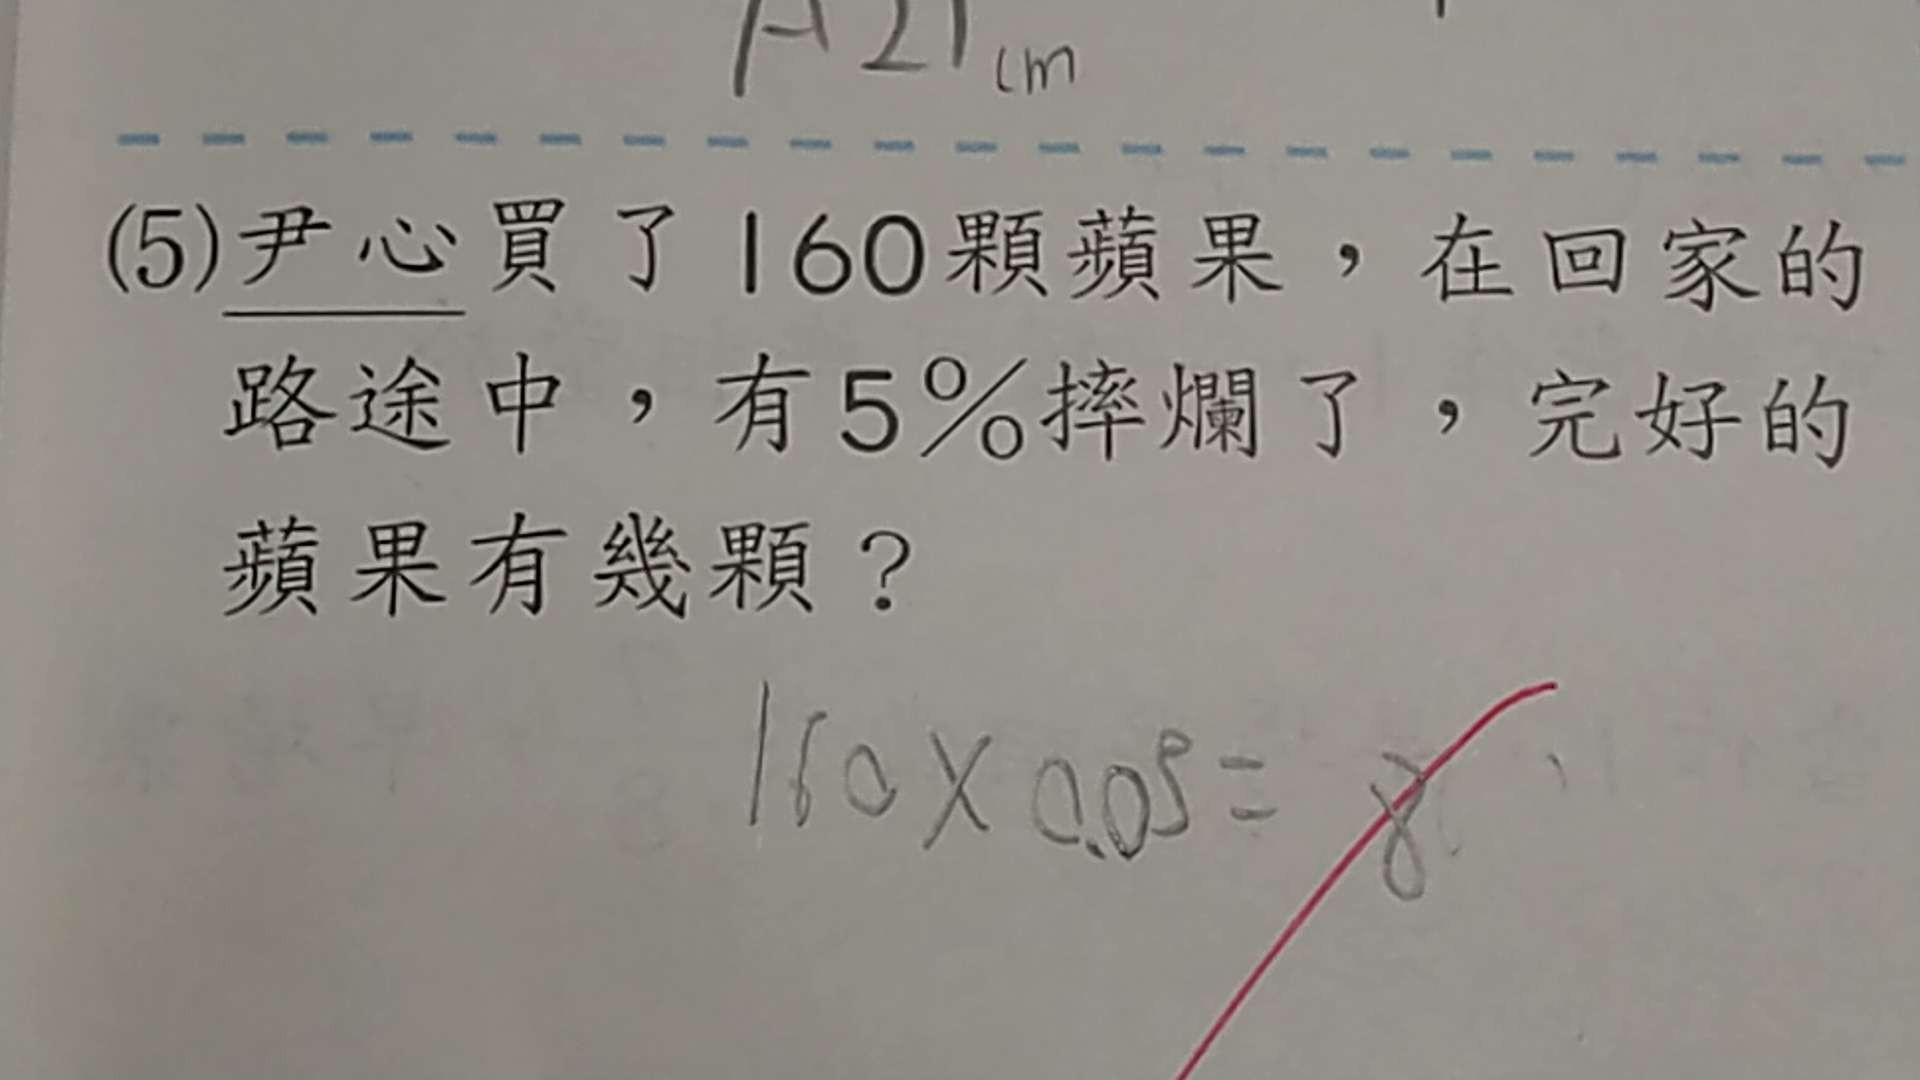 A21cm
(5)尹心買了160顆蘋果，在回家的
路途中，有5%摔爛了，完好的
蘋果有幾顆？
160×0.05=8